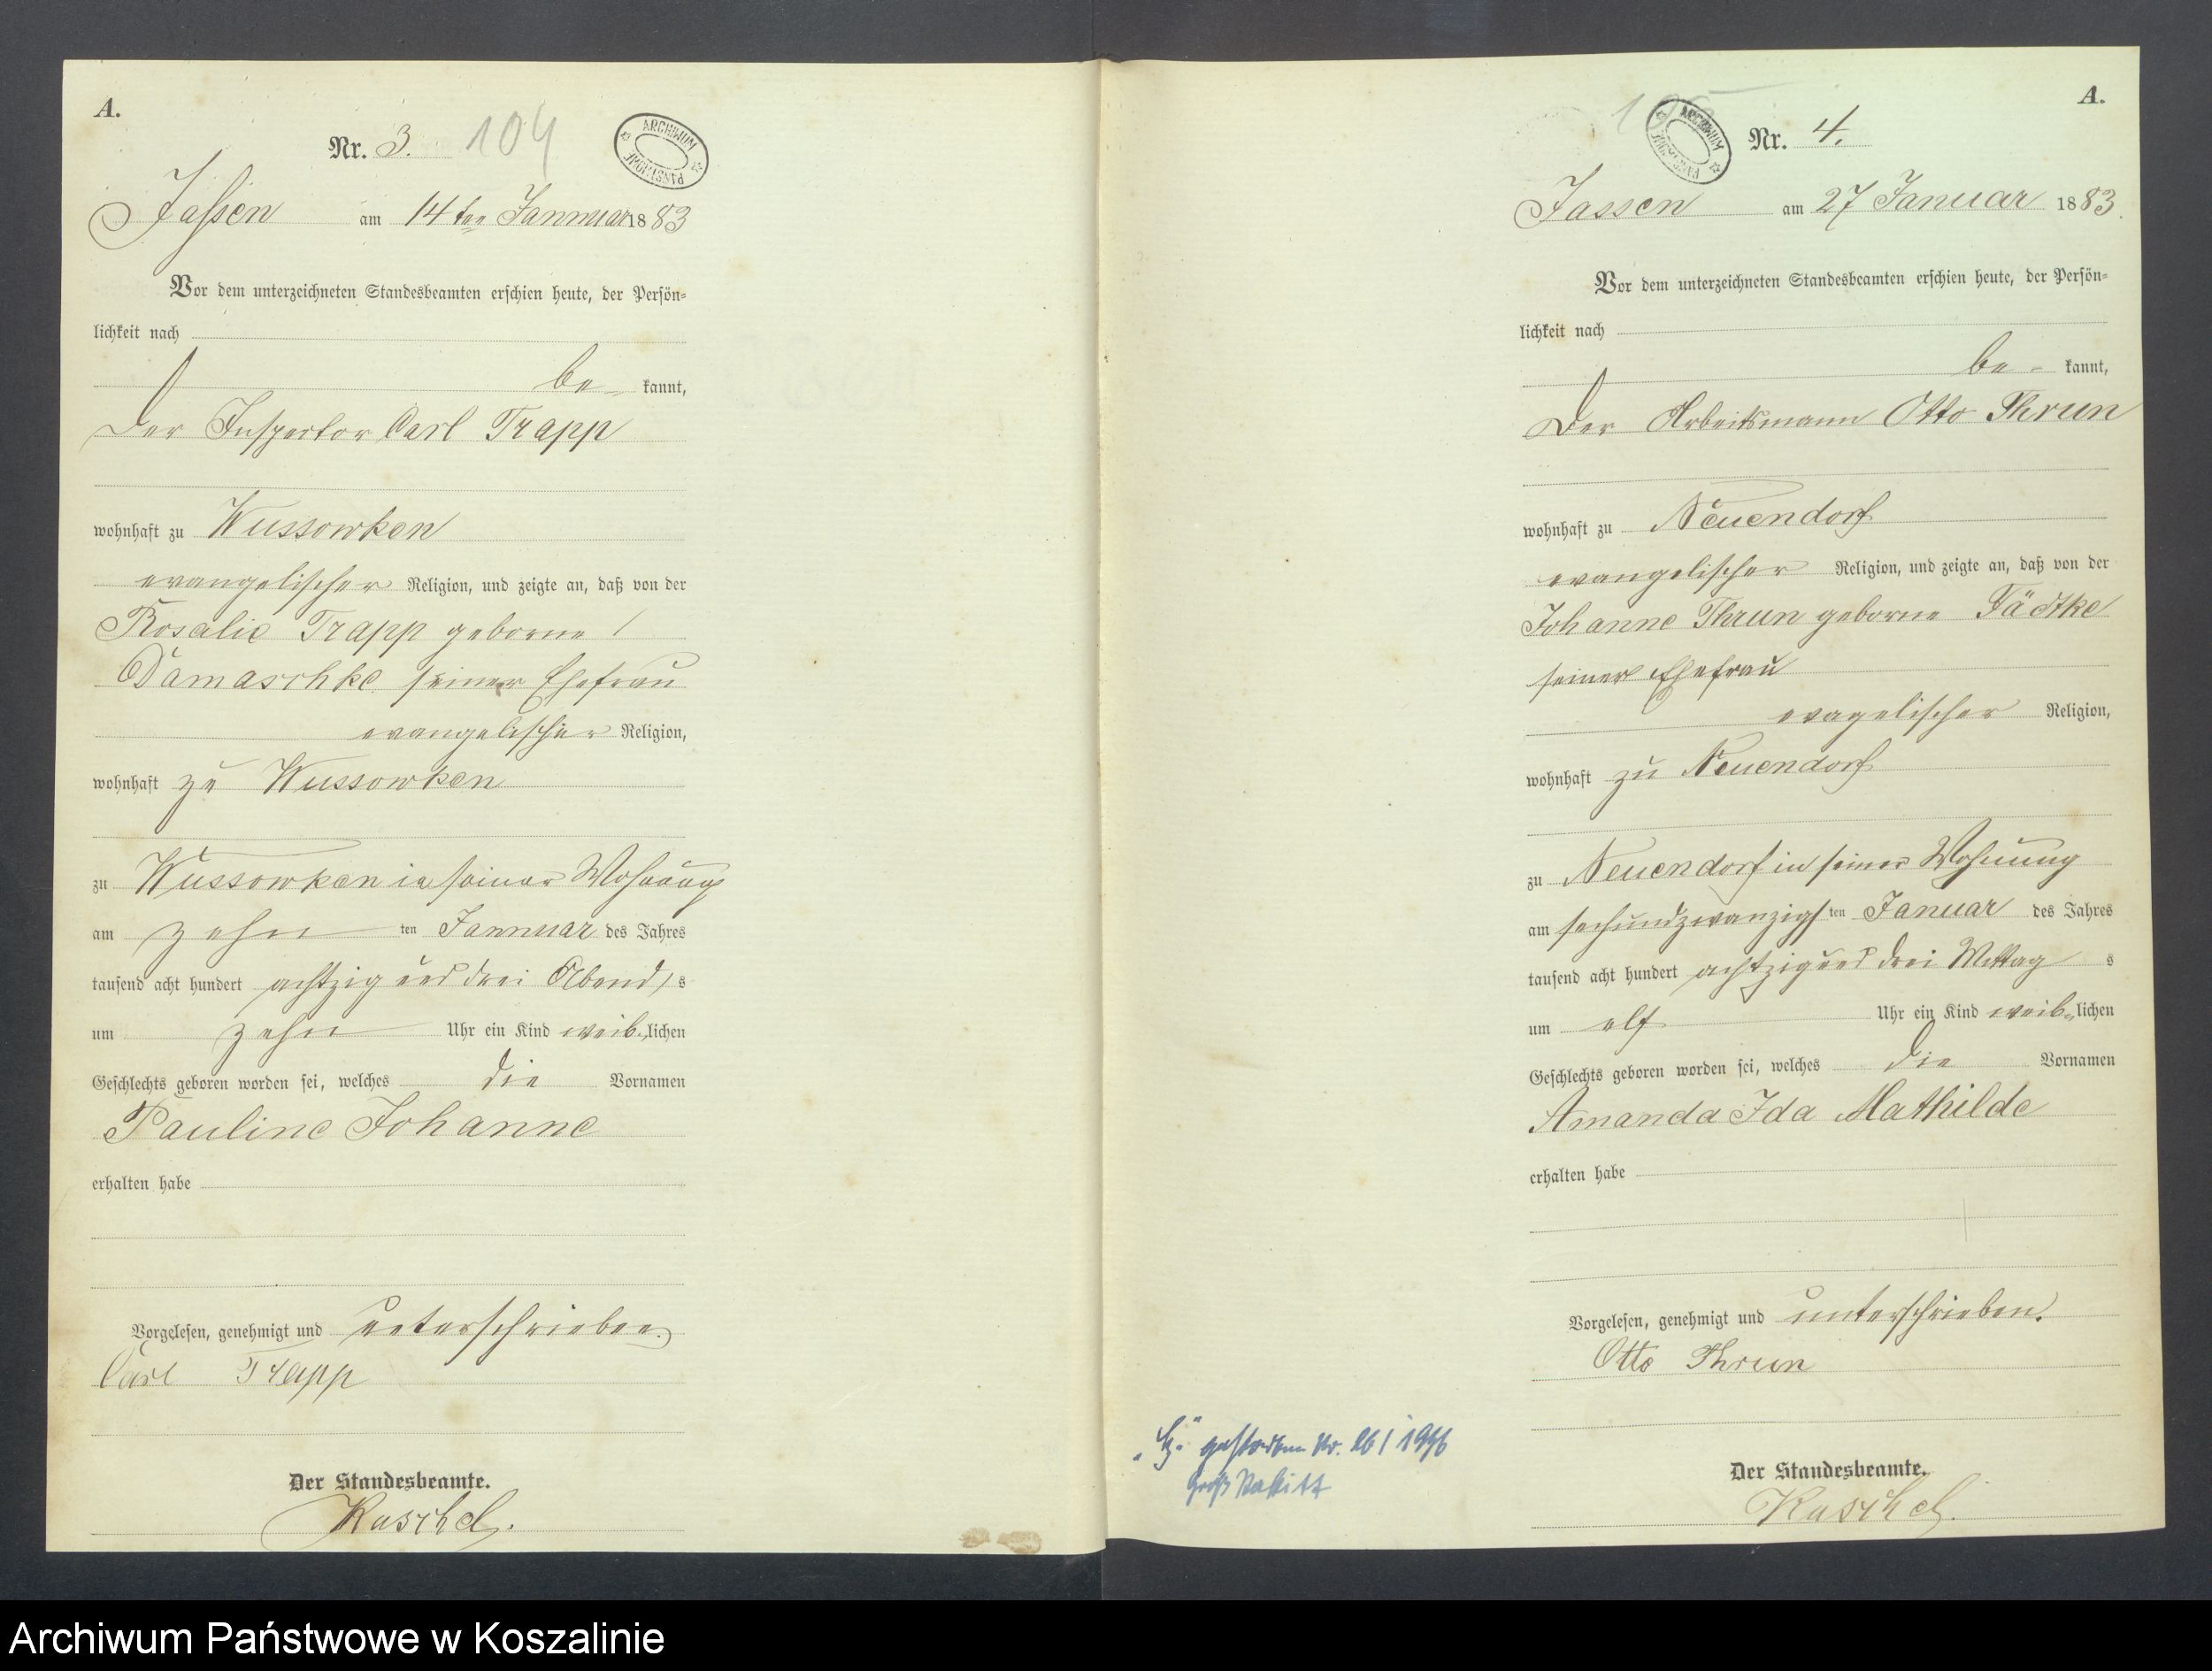 A.
Nr. 3. 104
ARCHIWUM PAŃSTWOWE
Jassen am 14ten Jannuar 1883
Vor dem unterzeichneten Standesbeamten erschien heute, der Persön-
lichkeit nach
be- kannt,
Der Inspector Carl Trapp
wohnhaft zu Wussowken
evangelischer Religion, und zeigte an, daß von der
Rosalie Trapp geborne
Damaschke seiner Ehefrau
evangelischer Religion,
wohnhaft zu Wussowken
zu Wussowken in seiner Wohnung
am zehn ten Jannuar des Jahres
tausend acht hundert achtzig und drei Abend s
um zehn Uhr ein Kind weib-lichen
Geschlechts geboren worden sei, welches die Vornamen
Pauline Johanne
erhalten habe
Vorgelesen, genehmigt und unterschrieben
Carl Trapp
Der Standesbeamte.
Kuschel.
A.
ARCHIWUM
Nr. 4.
Jassen am 27 Januar 1883.
Vor dem unterzeichneten Standesbeamten erschien heute, der Persön-
lichkeit nach
be- kannt,
Der Arbeitsmann Otto Thrun
wohnhaft zu Neuendorf
evangelischer Religion, und zeigte an, daß von der
Johanne Thrun geborne Tädtke
seiner Ehefrau
evagelischer Religion,
wohnhaft zu Neuendorf
zu Neuendorf in seiner Wohnung
am sechundzwanzigsten Januar des Jahres
tausend acht hundert achtzig und drei Mittag s
um elf Uhr ein Kind weib-lichen
Geschlechts geboren worden sei, welches die Vornamen
Amanda Ida Mathilde
erhalten habe
Vorgelesen, genehmigt und unterschrieben.
Otto Thrun
gestorben Nr.
Groß
Der Standesbeamte.
Kuschel.
Archiwum Państwowe w Koszalinie